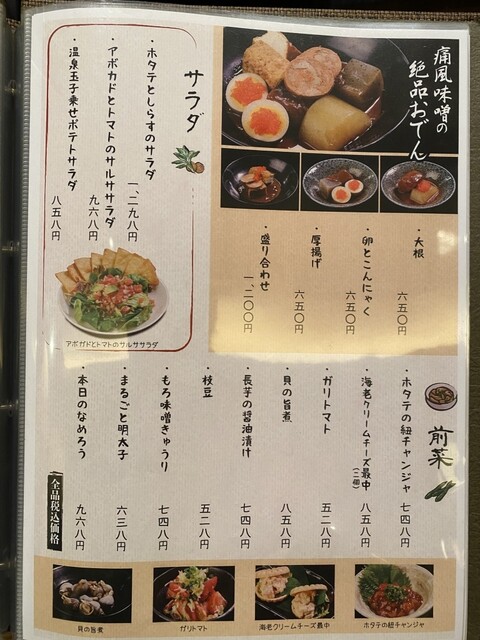 痛風味噌の
絶品、おでん
・大根
六五〇円
・卵とこんにゃく
六五〇円
・厚揚げ
六五〇円
・盛り合わせ
一、二〇〇円
サラダ
・ホタテとしらすのサラダ
一、二九八円
・アボカドとトマトのサルササラダ
九六八円
・温泉玉子乗せポテトサラダ
八五八円
アボガドとトマトのサルササラダ
前菜
・ホタテの紐チャンジャ
七四八円
・海老クリームチーズ最中(二個)
八五八円
・ガリトマト
五二八円
・貝の旨煮
八五八円
・長芋の醤油漬け
七四八円
・枝豆
五二八円
・もろ味噌きゅうり
七四八円
・まるごと明太子
六三八円
・本日のなめろう
九六八円
全品税込価格
貝の旨煮
ガリトマト
海老クリームチーズ最中
ホタテの紐チャンジャ